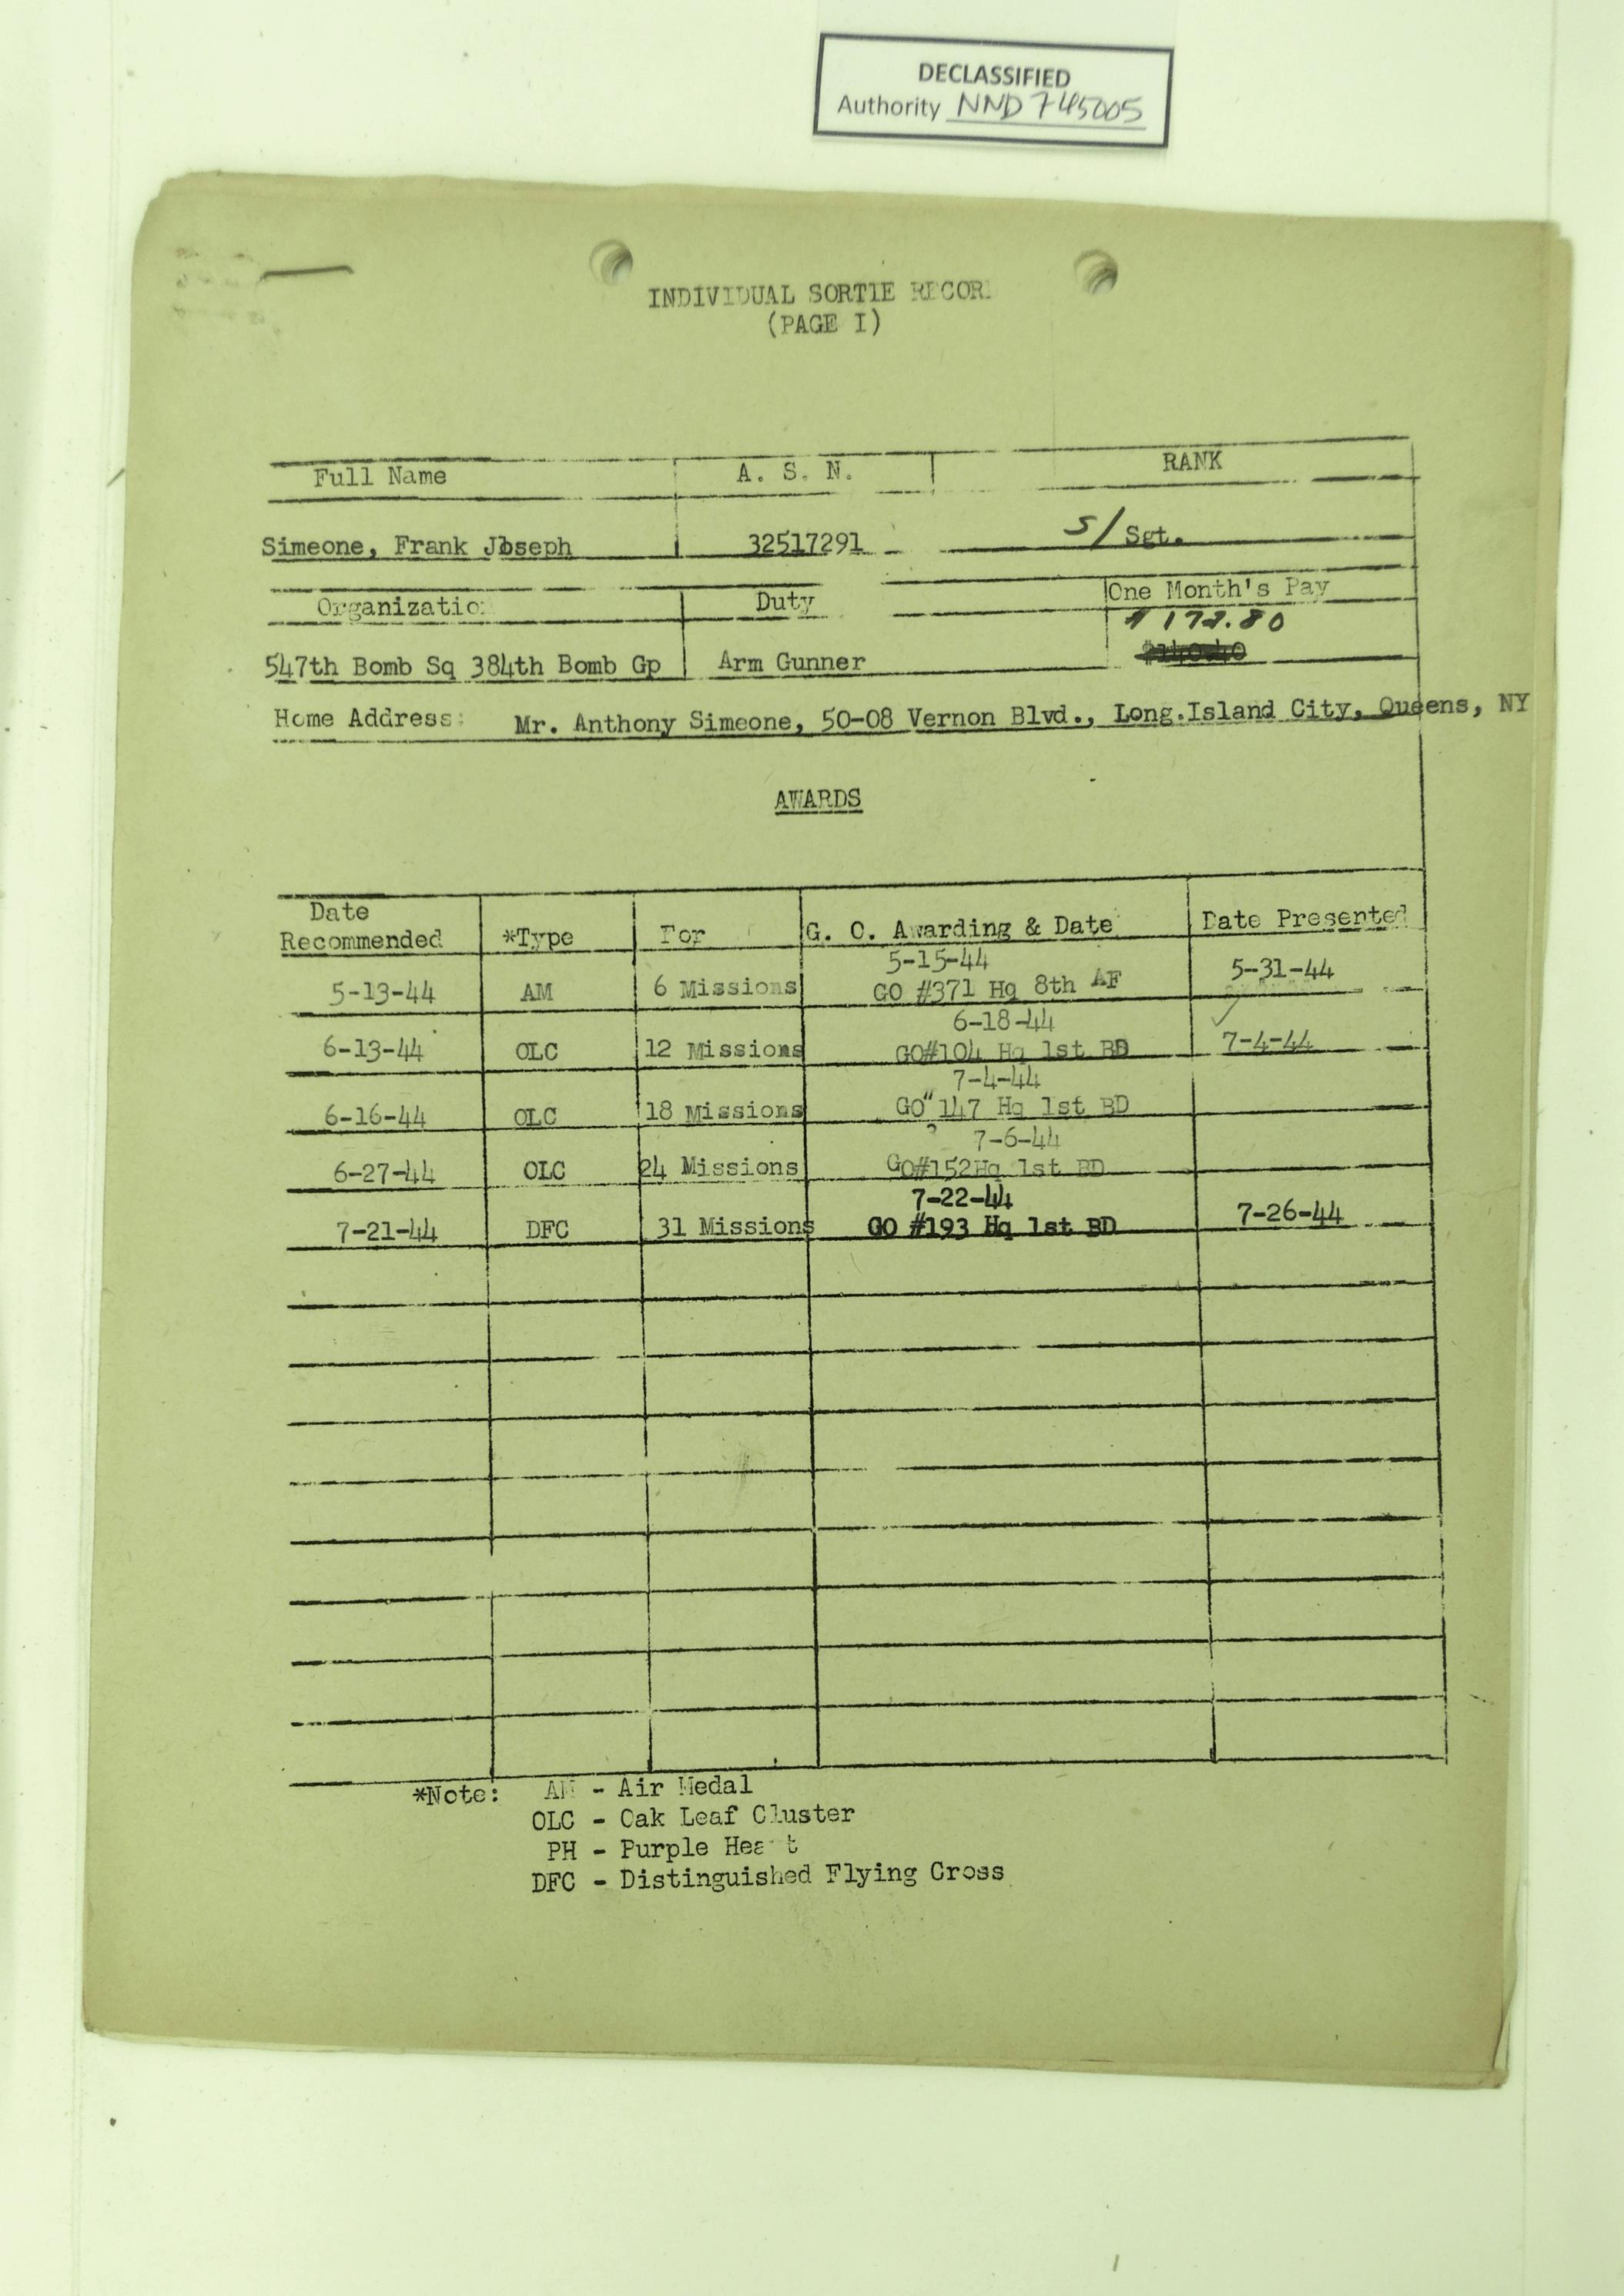 DECLASSIFIED
Authority NND 745005
INDIVIDUAL SORTIE RECOR
(PAGE I)
Full Name A. S. N. RANK
Simeone, Frank Joseph 32517291 S/Sgt.
Organizatio Duty One Month's Pay
$172.80
547th Bomb Sq 384th Bomb Gp Arm Gunner $140.40
Home Address: Mr. Anthony Simeone, 50-08 Vernon Blvd., Long.Island City, Queens, NY
AWARDS
Date
Recommended *Type For G. O. Awarding & Date Date Presented
5-15-44
5-13-44 AM 6 Missions GO #371 Hq 8th AF 5-31-44
6-18-44
6-13-44 OLC 12 Missions GO#104 Hq 1st BD 7-4-44
7-4-44
6-16-44 OLC 18 Missions GO" 147 Hq 1st BD
7-6-44
6-27-44 OLC 24 Missions GO#152Hq 1st BD
7-22-44
7-21-44 DFC 31 Missions GO #193 Hq 1st BD 7-26-44
*Note: AM - Air Medal
OLC - Oak Leaf Cluster
PH - Purple Heart
DFC - Distinguished Flying Cross